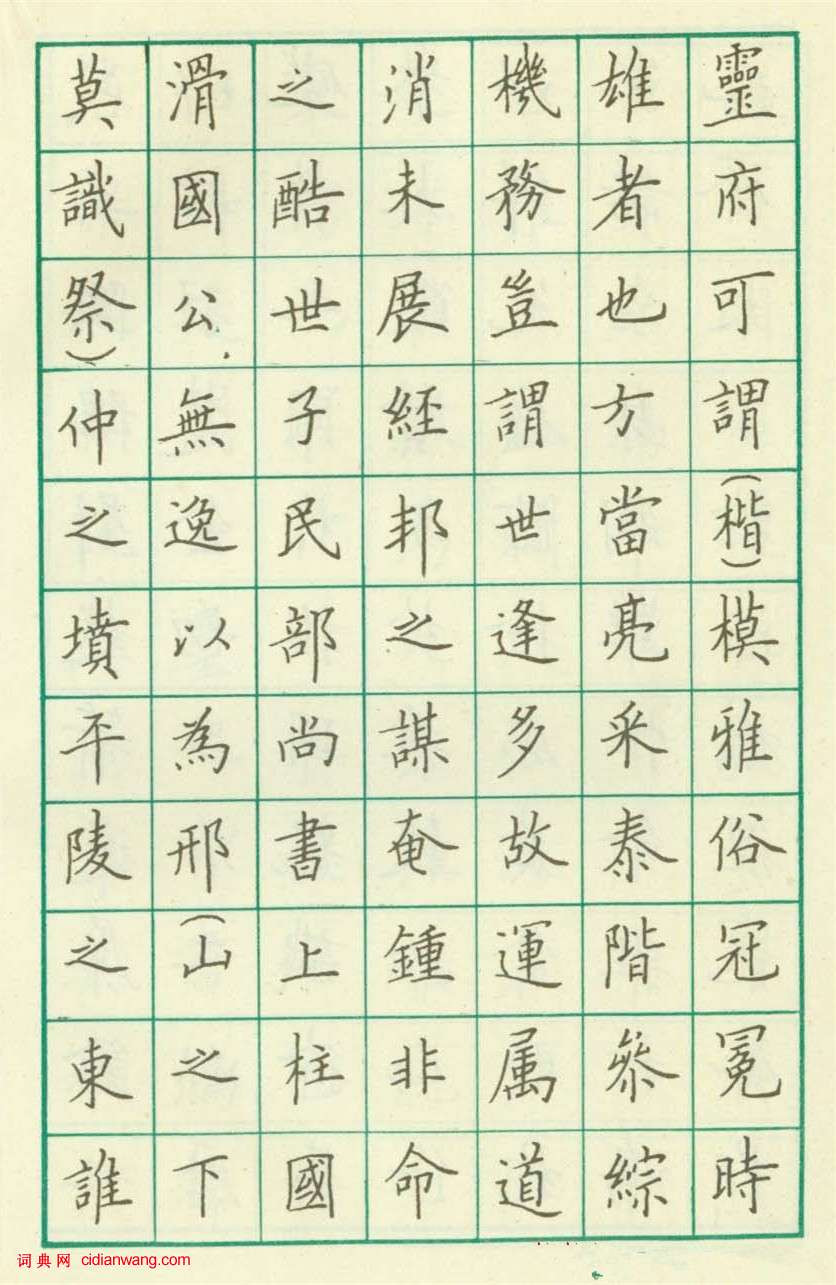 靈府可謂(楷)模雅俗冠冕時
雄者也方當亮采泰階叅綜
機務豈謂世逢多故運属道
消未展經邦之謀奄鍾非命
之酷世子民部尚書上柱國
滑國公,無逸以為邢(山之下
莫識祭)仲之墳平陵之東誰
词典网 cidianwang.com